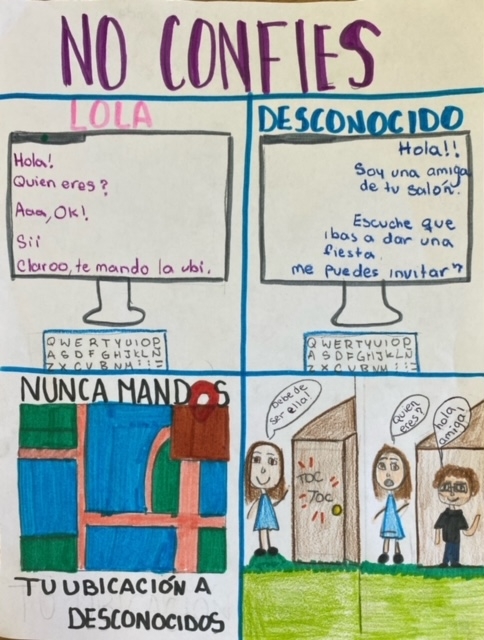 NO CONFIES
LOLA
Hola!
Quien eres?
Aaa, Ok!
Sii
Claroo, te mando la ubi.
QWERTYUIOP
ASDFGHJKLÑ
ZXCVBNM
DESCONOCIDO
Hola!!
Soy una amiga
de tu salón.
Escuche que
ibas a dar una
fiesta.
me puedes invitar?
QWERTYUIOP
ASDFGHJKLÑ
ZXCVBNM
NUNCA MANDES
TU UBICACIÓN A
DESCONOCIDOS
Debe de
ser ella!
TOC
TOC
Quien
eres?
hola
amiga!